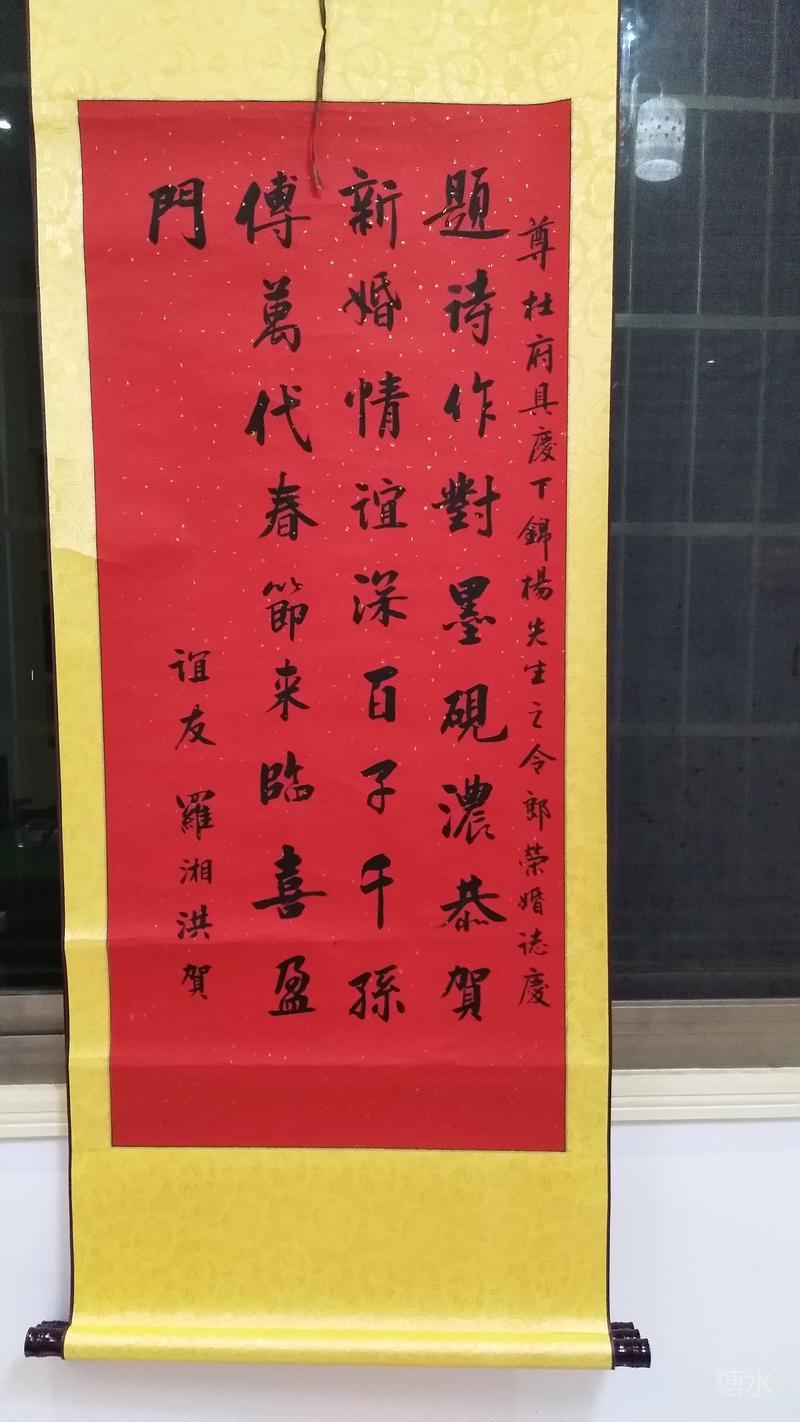 尊杜府具慶下錦楊先生之令郎荣婚誌慶
題诗作對墨硯濃恭賀
新婚情谊深百子千孫
傳萬代春節来臨喜盈
門
谊友羅湘洪賀
糖水